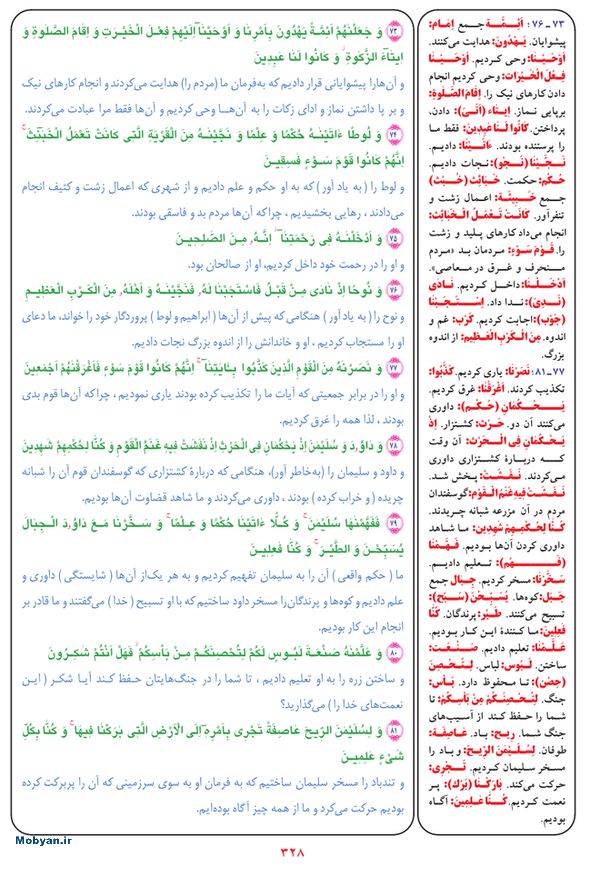 ۷۳ـ۷۶: أَئِمَّة جـمـع إِمَام:
پیشوایان. يَهْدُونَ: هدایت می‌کنند.
أَوْحَيْنَا: وحی کردیم. أَوْحَيْنَا
فِعْلَ الْخَيْرَات: وحی کردیم انجام
دادن کارهای نیک را. إِقَامَ الصَّلَوةِ:
برپایی نماز. إِيتَاء (أَتَى): دادن،
پرداختن. كَانُوا لَنا عِبدِينَ: فقط ما
را پرستنده بودند. ءَاتَيْنَا: دادیم.
نَجَّيْنَا (نَجَو): نجات دادیم.
حُكْم: حکمت. خَبَائِث (خُبْث)
جمع خَبِيثَة: اعمال زشت و
تنفرآور. كَانَتْ تَعْمَلُ الْخَبَائِثَ:
انجام می‌داد کارهای پلید و زشت
را. قَوْمَ سَوْءٍ: مردمان بد «مردم
منحرف و غرق در معاصی».
أَدْخَلْنَا: داخل کردیم. نَادَى
(نَدِىَ): ندا داد. اِسْتَجَبْنَا
(جَوْب): اجابت کردیم. كَرْب: غم و
اندوه. مِنَ الْكَرْبِ الْعَظِيم: از اندوه
بزرگ.
۷۷ـ۸۱: نَصَرْنَا: یاری کردیم. كَذَّبُوا:
تکذیب کردند. أَغْرَقْنَا: غرق کردیم.
يَحْكُمَانِ (حُكْم): داوری
می‌کنند آن دو. حَرْث: کشتزار. إِذْ
يَحْكُمَانِ فِى الْحَرْثِ: آن وقت
که دربارهٔ کشتزاری داوری
می‌کردند. نَفَشَتْ: پخش شد.
نَفَشَتْ فِيهِ غَنَمُ الْقَوْم: گوسفندان
مردم در آن مزرعه شبانه چریدند.
كُنَّا لِحُكْمِهِمْ شَهِدِين: ما شاهد
داوری کردن آن‌ها بودیم. فَهَّمْنَا
(فَهْم): تعلیم دادیم.
سَخَّرْنَا: مسخر کردیم. جِبَال جمع
جَبَل: کوه‌ها. يُسَبِّحْنَ (سَبح):
تسبیح می‌کنند. طَيْر: پرندگان. كُنَّا
فَعِلِينَ: ما کنندهٔ این کار بودیم.
عَلَّمْنَا: تعلیم دادیم. صَنْعَت:
ساختن. لَبُوس: لباس. لِتُحْصِنَ
(حِصْن): تا محفوظ دارد. بَأْس:
جنگ. لِتُحْصِنَكُمْ مِنْ بَأْسِكُمْ: تا
شما را حفظ کند از آسیب‌های
جنگ شما. رِيح: باد. عَاصِفَة:
طوفان. لِسُلَيْمَنَ الرِّيحَ: و باد را
مسخر سلیمان کردیم. تَجْرِى:
حرکت می‌کند. بَارَكْنَا (بَرْك): پر
نعمت کردیم. كُنَّا عَلِمِينَ: آگاه
بودیم.
۷۳ وَ جَعَلْنَهُمْ أَئِمَّةً يَهْدُونَ بِأَمْرِنَا وَ أَوْحَيْنَآ إِلَيْهِمْ فِعْلَ الْخَيْرَتِ وَ إِقَامَ الصَّلَوةِ وَ
إِيتَآءَ الزَّكَوةِ ۖ وَ كَانُوا لَنَا عَبِدِينَ
و آن‌ها را پیشوایانی قرار دادیم که به‌فرمان ما (مردم را) هدایت می‌کردند و انجام کارهای نیک
و بر پا داشتن نماز و ادای زکات را به آن‌هـا وحی کردیم و آن‌ها فقط مرا عبادت می‌کردند.
۷۴ وَ لُوطًا ءَاتَيْنَهُ حُكْمًا وَ عِلْمًا وَ نَجَّيْنَهُ مِنَ الْقَرْيَةِ الَّتِى كَانَتْ تَعْمَلُ الْخَبَئِثَ ۗ
إِنَّهُمْ كَانُوا قَوْمَ سَوْءٍ فَسِقِينَ
و لوط را ( به یاد آور ) که به او حکم و علم دادیم و از شهری که اعمال زشت و کثیف انجام
می‌دادند ، رهایی بخشیدیم ، چراکه آن‌ها مردم بد و فاسقی بودند.
۷۵ وَ أَدْخَلْنَهُ فِى رَحْمَتِنَآ ۖ إِنَّهُ مِنَ الصَّلِحِينَ
و او را در رحمت خود داخل کردیم، او از صالحان بود.
۷۶ وَ نُوحًا إِذْ نَادَى مِنْ قَبْلُ فَاسْتَجَبْنَا لَهُ فَنَجَّيْنَهُ وَ أَهْلَهُ مِنَ الْكَرْبِ الْعَظِيمِ
و نوح را ( به یاد آور ) هنگامی که پیش از آن‌ها ( ابراهیم و لوط ) پروردگار خود را خواند، ما دعای
او را مستجاب کردیم ، او و خاندانش را از اندوه بزرگ نجات دادیم.
۷۷ وَ نَصَرْنَهُ مِنَ الْقَوْمِ الَّذِينَ كَذَّبُوا بِـَايَتِنَآ ۚ إِنَّهُمْ كَانُوا قَوْمَ سَوْءٍ فَأَغْرَقْنَهُمْ أَجْمَعِينَ
و او را در برابر جمعیتی که آیات ما را تکذیب کرده بودند یاری نمودیم ، چراکه آن‌ها قوم بدی
بودند ، لذا همه را غرق کردیم.
۷۸ وَ دَاوُدَ وَ سُلَيْمَنَ إِذْ يَحْكُمَانِ فِى الْحَرْثِ إِذْ نَفَشَتْ فِيهِ غَنَمُ الْقَوْمِ وَ كُنَّا لِحُكْمِهِمْ شَهِدِينَ
و داود و سلیمان را (به‌خاطر آور)، هنگامی که دربارهٔ کشتزاری که گوسفندان قوم آن را شبانه
چریده ( و خراب کرده ) بودند ، داوری می‌کردند و ما شاهد قضاوت آن‌ها بودیم.
۷۹ فَفَهَّمْنَهَا سُلَيْمَنَ ۚ وَ كُلًّا ءَاتَيْنَا حُكْمًا وَ عِلْمًا ۚ وَ سَخَّرْنَا مَعَ دَاوُدَ الْجِبَالَ
يُسَبِّحْنَ وَ الطَّيْرَ ۚ وَ كُنَّا فَعِلِينَ
ما ( حکم واقعی ) آن را به سلیمان تفهیم کردیم و به هر یک‌از آن‌ها ( شایستگی ) داوری و
علم دادیم و کوه‌ها و پرندگان‌را مسخر داود ساختیم که با او تسبیح ( خدا ) می‌گفتند و ما قادر بر
انجام این کار بودیم.
۸۰ وَ عَلَّمْنَهُ صَنْعَةَ لَبُوسٍ لَكُمْ لِتُحْصِنَكُمْ مِنْ بَأْسِكُمْ ۖ فَهَلْ أَنْتُمْ شَكِرُونَ
و ساختن زره را به او تعلیم دادیم ، تا شما را در جنگ‌هایتان حفـظ کنـد آیـا شکـر ( ایـن
نعمت‌های خدا را ) می‌گذارید؟
۸۱ وَ لِسُلَيْمَنَ الرِّيحَ عَاصِفَةً تَجْرِى بِأَمْرِهِ إِلَى الْأَرْضِ الَّتِى بَرَكْنَا فِيهَا ۚ وَ كُنَّا بِكُلِّ
شَىْءٍ عَلِمِينَ
و تندباد را مسخر سلیمان ساختیم که به فرمان او به سوی سرزمینی که آن را پربرکت کرده
بودیم حرکت می‌کرد و ما از همه چیز آگاه بوده‌ایم.
Mobyan.ir
۳۲۸